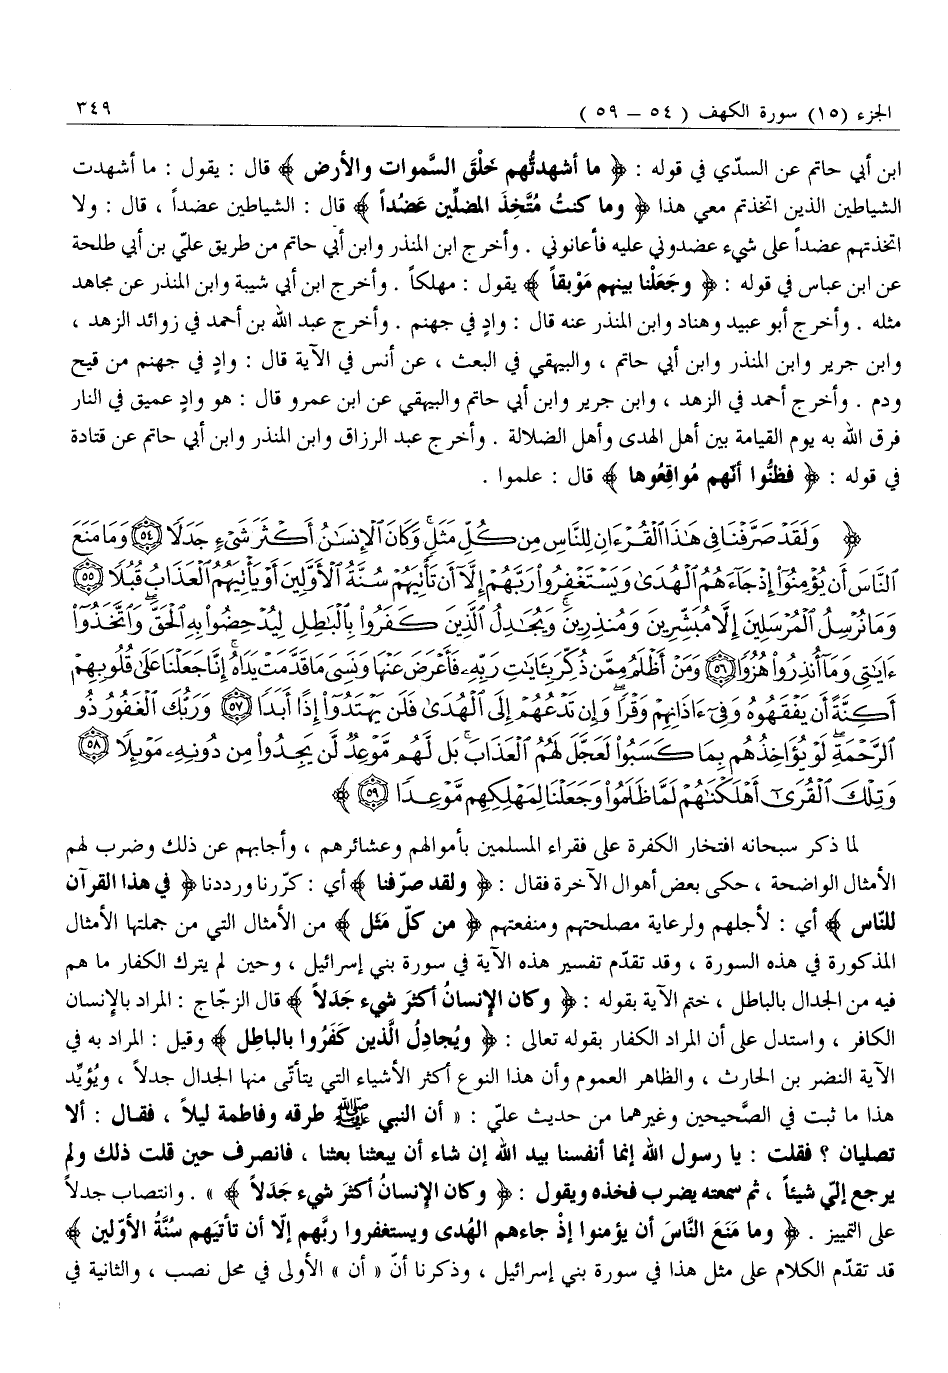 الجزء (١٥) سورة الكهف ( ٥٤ – ٥٩ )
٣٤٩
ابن أبي حاتم عن السدّي في قوله : ﴿ ما أشهدتُّهم خَلْقَ السَّموات والأرض ﴾ قال : يقول : ما أشهدت
الشياطين الذين اتخذتم معي هذا ﴿ وما كنتُ مُتَّخِذَ المضلِّين عَضُداً ﴾ قال : الشياطين عضداً ، قال : ولا
اتخذتهم عضداً على شيء عضدوني عليه فأعانوني . وأخرج ابن المنذر وابن أبي حاتم من طريق عليّ بن أبي طلحة
عن ابن عباس في قوله : ﴿ وجَعَلْنا بينهم مَوْبقاً ﴾ يقول : مهلكاً . وأخرج ابن أبي شيبة وابن المنذر عن مجاهد
مثله . وأخرج أبو عبيد وهناد وابن المنذر عنه قال : وادٍ في جهنم . وأخرج عبد الله بن أحمد في زوائد الزهد ،
وابن جرير وابن المنذر وابن أبي حاتم ، والبيهقي في البعث ، عن أنس في الآية قال : وادٍ في جهنم من قيح
ودم . وأخرج أحمد في الزهد ، وابن جرير وابن أبي حاتم والبيهقي عن ابن عمرو قال : هو وادٍ عميق في النار
فرق الله به يوم القيامة بين أهل الهدى وأهل الضلالة . وأخرج عبد الرزاق وابن المنذر وابن أبي حاتم عن قتادة
في قوله : ﴿ فظنُّوا أنّهم مُواقِعُوها ﴾ قال : علموا .
﴿ وَلَقَدْ صَرَّفْنَا فِي هَٰذَا ٱلْقُرْءَانِ لِلنَّاسِ مِن كُلِّ مَثَلٍ ۚ وَكَانَ ٱلْإِنسَٰنُ أَكْثَرَ شَىْءٍ جَدَلًا ﴿٥٤﴾ وَمَا مَنَعَ
ٱلنَّاسَ أَن يُؤْمِنُوٓا۟ إِذْ جَآءَهُمُ ٱلْهُدَىٰ وَيَسْتَغْفِرُوا۟ رَبَّهُمْ إِلَّآ أَن تَأْتِيَهُمْ سُنَّةُ ٱلْأَوَّلِينَ أَوْ يَأْتِيَهُمُ ٱلْعَذَابُ قُبُلًا ﴿٥٥﴾
وَمَا نُرْسِلُ ٱلْمُرْسَلِينَ إِلَّا مُبَشِّرِينَ وَمُنذِرِينَ ۚ وَيُجَٰدِلُ ٱلَّذِينَ كَفَرُوا۟ بِٱلْبَٰطِلِ لِيُدْحِضُوا۟ بِهِ ٱلْحَقَّ ۖ وَٱتَّخَذُوٓا۟
ءَايَٰتِى وَمَآ أُنذِرُوا۟ هُزُوًا ﴿٥٦﴾ وَمَنْ أَظْلَمُ مِمَّن ذُكِّرَ بِـَٔايَٰتِ رَبِّهِۦ فَأَعْرَضَ عَنْهَا وَنَسِىَ مَا قَدَّمَتْ يَدَاهُ ۚ إِنَّا جَعَلْنَا عَلَىٰ قُلُوبِهِمْ
أَكِنَّةً أَن يَفْقَهُوهُ وَفِىٓ ءَاذَانِهِمْ وَقْرًا ۖ وَإِن تَدْعُهُمْ إِلَى ٱلْهُدَىٰ فَلَن يَهْتَدُوٓا۟ إِذًا أَبَدًا ﴿٥٧﴾ وَرَبُّكَ ٱلْغَفُورُ ذُو
ٱلرَّحْمَةِ ۖ لَوْ يُؤَاخِذُهُم بِمَا كَسَبُوا۟ لَعَجَّلَ لَهُمُ ٱلْعَذَابَ ۚ بَل لَّهُم مَّوْعِدٌ لَّن يَجِدُوا۟ مِن دُونِهِۦ مَوْئِلًا ﴿٥٨﴾
وَتِلْكَ ٱلْقُرَىٰٓ أَهْلَكْنَٰهُمْ لَمَّا ظَلَمُوا۟ وَجَعَلْنَا لِمَهْلِكِهِم مَّوْعِدًا ﴿٥٩﴾ ﴾
لما ذكر سبحانه افتخار الكفرة على فقراء المسلمين بأموالهم وعشائرهم ، وأجابهم عن ذلك وضرب لهم
الأمثال الواضحة ، حكى بعض أهوال الآخرة فقال : ﴿ ولقد صرّفنا ﴾ أي : كرّرنا ورددنا ﴿ في هذا القرآن
للنّاس ﴾ أي : لأجلهم ولرعاية مصلحتهم ومنفعتهم ﴿ من كلّ مَثَل ﴾ من الأمثال التي من جملتها الأمثال
المذكورة في هذه السورة ، وقد تقدّم تفسير هذه الآية في سورة بني إسرائيل ، وحين لم يترك الكفار ما هم
فيه من الجدال بالباطل ، ختم الآية بقوله : ﴿ وكان الإنسانُ أكثرَ شيء جَدَلاً ﴾ قال الزجّاج : المراد بالإنسان
الكافر ، واستدل على أن المراد الكفار بقوله تعالى : ﴿ ويُجادِلُ الَّذين كَفَرُوا بالباطِل ﴾ وقيل : المراد به في
الآية النضر بن الحارث ، والظاهر العموم وأن هذا النوع أكثر الأشياء التي يتأتّى منها الجدال جدلاً ، ويُؤيِّد
هذا ما ثبت في الصَّحيحين وغيرهما من حديث عليّ : « أن النبي ﷺ طرقه وفاطمة ليلاً ، فقال : ألا
تصليان ؟ فقلت : يا رسول الله إنما أنفسنا بيد الله إن شاء أن يبعثنا بعثنا ، فانصرف حين قلت ذلك ولم
يرجع إليّ شيئاً ، ثم سمعته يضرب فخذه ويقول : ﴿ وكان الإنسانُ أكثرَ شيء جَدَلاً ﴾ » . وانتصاب جدلاً
على التمييز . ﴿ وما مَنَعَ النَّاسَ أن يؤمنوا إذْ جاءهم الهُدى ويستغفروا ربَّهم إلّا أن تأتيَهم سُنَّةُ الأوّلين ﴾
قد تقدّم الكلام على مثل هذا في سورة بني إسرائيل ، وذكرنا أنّ « أن » الأولى في محل نصب ، والثانية في